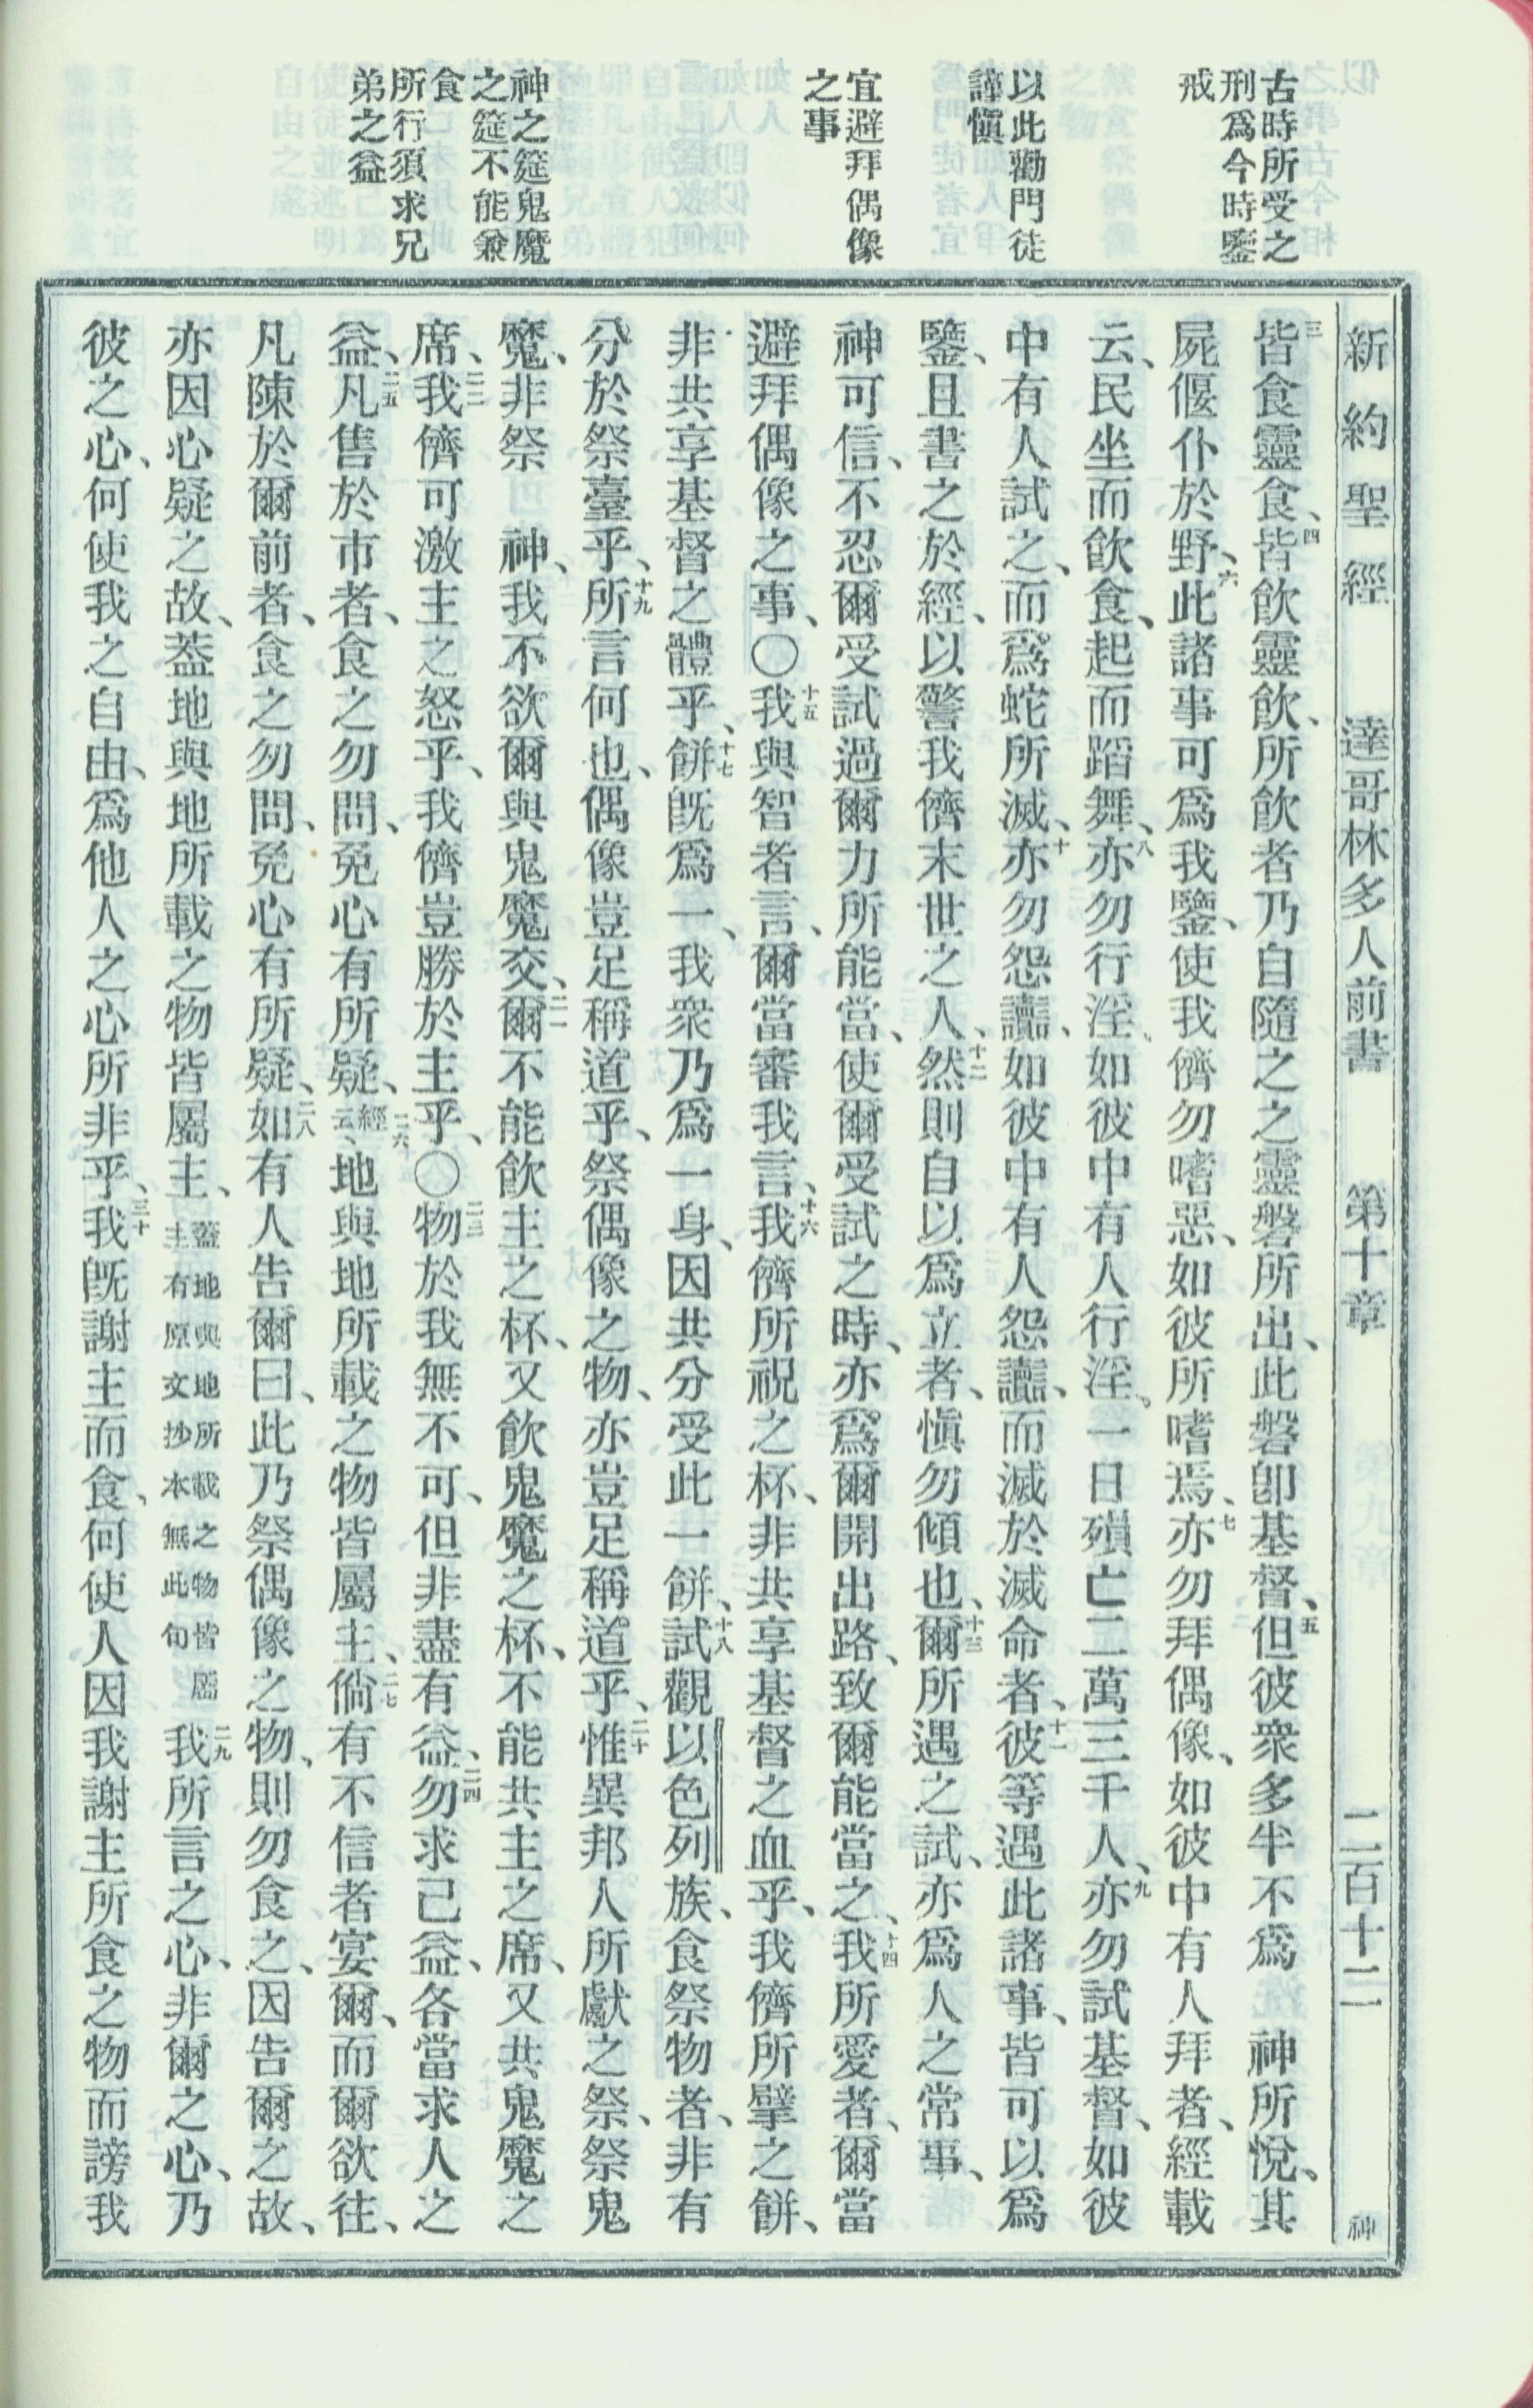 古時所受之
刑爲今時鑒
戒
以此勸門徒
謹愼
宜避拜偶像
之事
神之筵鬼魔
之筵不能兼
食
所行須求兄
弟之益
新約聖經 達哥林多人前書 第十章 二百十二 神
三皆食靈食、四皆飮靈飮、所飮者乃自隨之之靈磐所出、此磐卽基督、五但彼衆多半不爲 神所悅、其
屍偃仆於野、六此諸事可爲我鑒、使我儕勿嗜惡、如彼所嗜焉、七亦勿拜偶像、如彼中有人拜者、經載
云、民坐而飮食、起而蹈舞、八亦勿行淫、如彼中有人行淫、一日殞亡二萬三千人、九亦勿試基督、如彼
中有人試之、而爲蛇所滅、十亦勿怨讟、如彼中有人怨讟、而滅於滅命者、十一彼等遇此諸事、皆可以爲
鑒、且書之於經、以警我儕末世之人、十二然則自以爲立者、愼勿傾也、十三爾所遇之試、亦爲人之常事、
神可信、不忍爾受試過爾力所能當、使爾受試之時、亦爲爾開出路、致爾能當之、十四我所愛者、爾當
避拜偶像之事、○十五我與智者言、爾當審我言、十六我儕所祝之杯、非共享基督之血乎、我儕所擘之餅、
非共享基督之體乎、十七餅旣爲一、我衆乃爲一身、因共分受此一餅、十八試觀以色列族、食祭物者、非有
分於祭臺乎、十九所言何也、偶像豈足稱道乎、祭偶像之物、亦豈足稱道乎、二十惟異邦人所獻之祭、祭鬼
魔、非祭 神、我不欲爾與鬼魔交、二一爾不能飮主之杯、又飮鬼魔之杯、不能共主之席、又共鬼魔之
席、二二我儕可激主之怒乎、我儕豈勝於主乎、○二三物於我無不可、但非盡有益、二四勿求己益、各當求人之
益、二五凡售於市者、食之勿問、免心有所疑、二六經云、地與地所載之物皆屬主、二七倘有不信者宴爾、而爾欲往、
凡陳於爾前者、食之勿問、免心有所疑、二八如有人告爾曰、此乃祭偶像之物、則勿食之、因告爾之故、
亦因心疑之故、蓋地與地所載之物皆屬主、蓋地與地所載之物皆屬主有原文抄本無此句 二九我所言之心、非爾之心、乃
彼之心、何使我之自由、爲他人之心所非乎、三十我旣謝主而食、何使人因我謝主所食之物而謗我